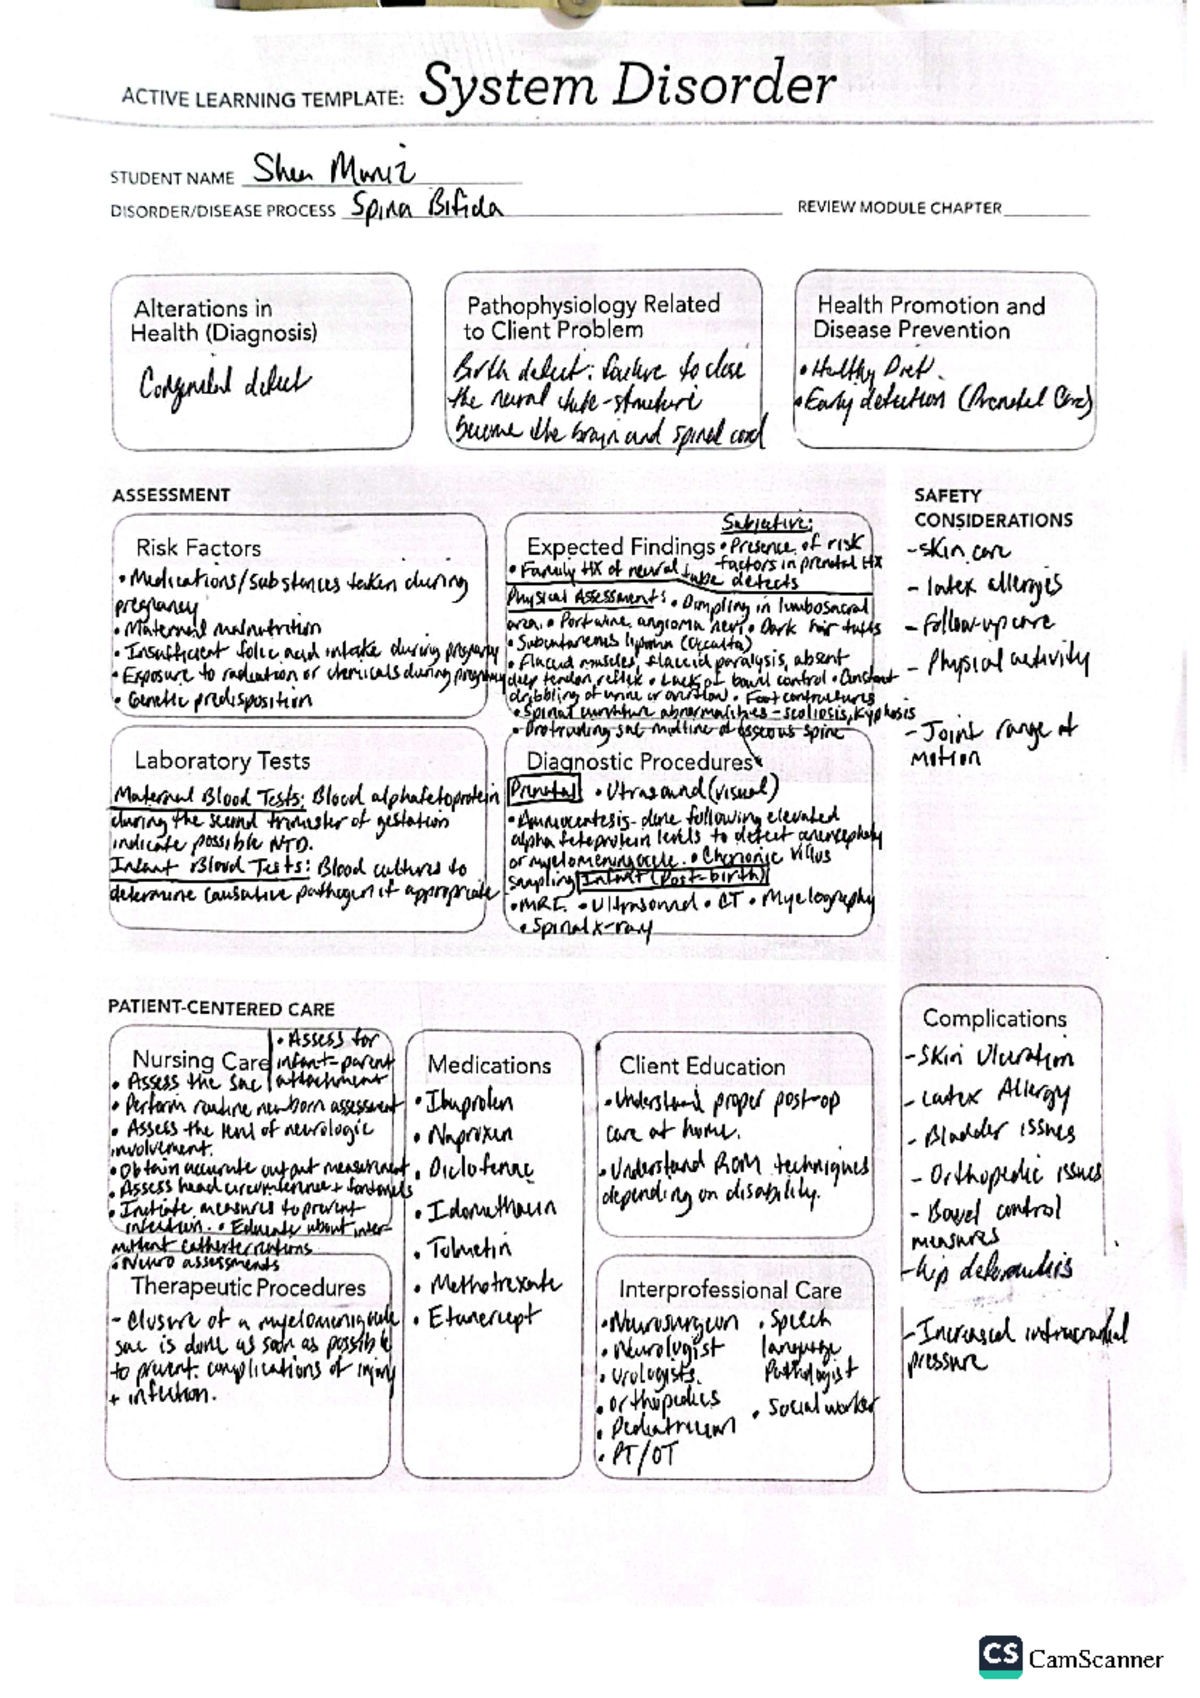 ACTIVE LEARNING TEMPLATE: System Disorder
STUDENT NAME Shea Muniz
DISORDER/DISEASE PROCESS Spina Bifida
REVIEW MODULE CHAPTER
Alterations in
Health (Diagnosis)
Congenital defect
Pathophysiology Related
to Client Problem
Birth defect: failure to close
the neural tube-structure
become the brain and spinal cord
Health Promotion and
Disease Prevention
• Healthy Diet.
• Early detection (Prenatal Care)
ASSESSMENT
Risk Factors
• Medications/substances taken during
pregnancy
• Maternal malnutrition
• Insufficient folic acid intake during pregnancy
• Exposure to radiation or chemicals during pregnancy
• Genetic predisposition
Expected Findings
Subjective:
• Presence of risk
factors in prenatal HX
• Family HX of neural tube defects
Physical Assessments • Dimpling in lumbosacral
area. • Port wine, angioma nevi • Dark hair tufts
• Subcutaneous lipoma (occulta)
• Flaccid muscles, flaccid paralysis, absent
deep tendon reflex • Lack of bowel control • Constant
dribbling of urine or overflow • Foot contractures
• Spinal curvature abnormalities - scoliosis, kyphosis
• Protruding sac midline of osseous spine
SAFETY
CONSIDERATIONS
- skin care
- latex allergies
- Follow-up care
- Physical activity
- Joint range of
motion
Laboratory Tests
Maternal Blood Tests: Blood alphafetoprotein
during the second trimester of gestation
indicate possible NTD.
Infant Blood Tests: Blood cultures to
determine causative pathogen if appropriate
Diagnostic Procedures
Prenatal • Utrasound (visual)
• Amniocentesis- done following elevated
alpha fetoprotein levels to detect anencephaly
or myelomeningocele. • Chorionic villus
sampling Infant (Post-birth)
• MRI. • Ultrasound • CT • Myelography
• Spinal x-ray
PATIENT-CENTERED CARE
Nursing Care
• Assess for
infant-parent
attachment
• Assess the sac
• Perform routine newborn assessment
• Assess the level of neurologic
involvement.
• Obtain accurate output measurement
• Assess head circumference + fontanels
• Initiate measures to prevent
infection. • Educate about inter-
mittent
• Neuro assessments
Therapeutic Procedures
- Closure of a
sac is done as soon as possible
to prevent complications of injury
+ infection.
Medications
• Ibuprofen
• Naproxen
• Diclofenac
•
• Tolmetin
• Methotrexate
• Etanercept
Client Education
• Understand proper post-op
care at home.
• Understand ROM techniques
depending on disability.
Interprofessional Care
• Neurosurgeon
• Neurologist
• Urologists.
• Orthopedics
• Pediatrician
• PT/OT
• Speech
language
Pathologist
• Social worker
Complications
- Skin Ulceration
- Latex Allergy
- Bladder issues
- Orthopedic issues
- Bowel control
measures
- hip deformities
- Increased intracranial
pressure
CS CamScanner